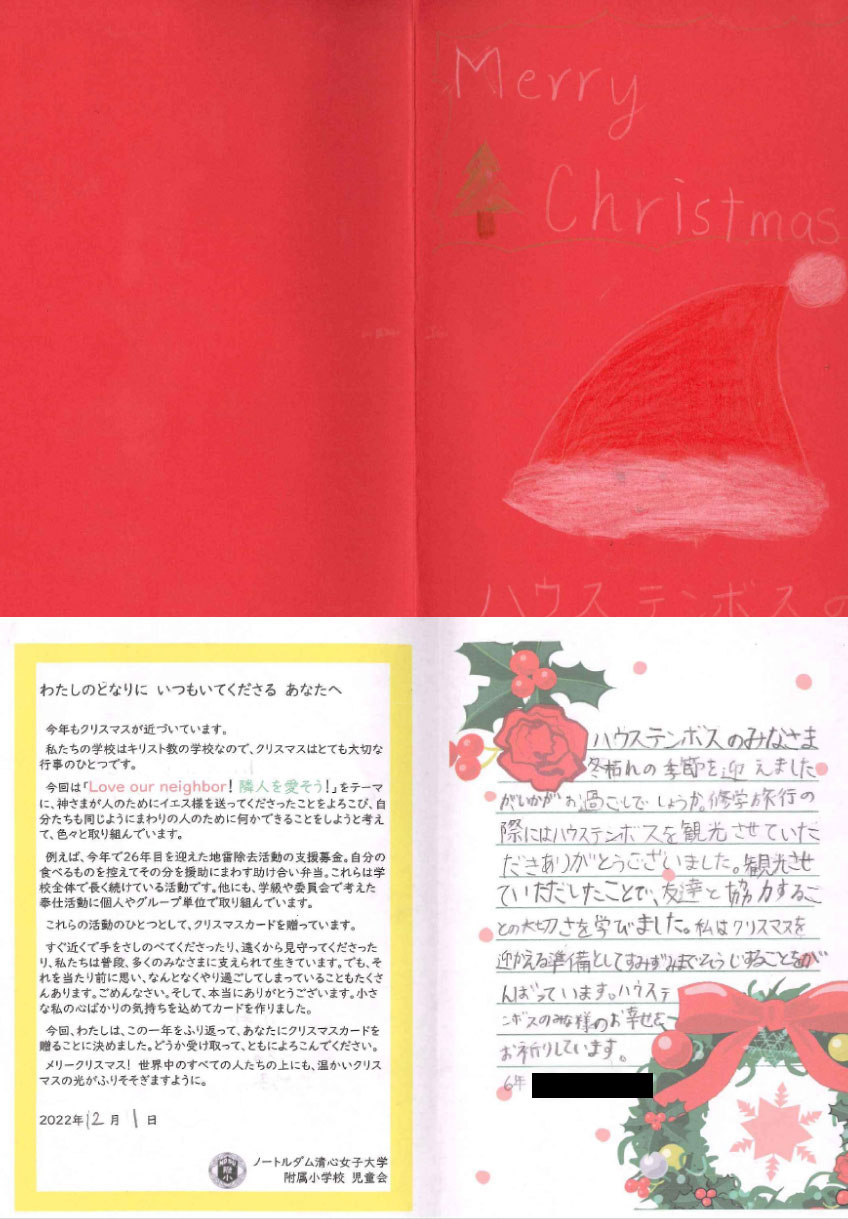 Merry
Christmas
ハウステンボスの
わたしのとなりに いつもいてくださる あなたへ
今年もクリスマスが近づいています。
私たちの学校はキリスト教の学校なので、クリスマスはとても大切な
行事のひとつです。
今回は「Love our neighbor! 隣人を愛そう!」をテーマ
に、神さまが人のためにイエス様を送ってくださったことをよろこび、自
分たちも同じようにまわりの人のために何かできることをしようと考え
て、色々と取り組んでいます。
例えば、今年で26年目を迎えた地雷除去活動の支援募金。自分の
食べるものを控えてその分を援助にまわす助け合い弁当。これらは学
校全体で長く続けている活動です。他にも、学級や委員会で考えた
奉仕活動に個人やグループ単位で取り組んでいます。
これらの活動のひとつとして、クリスマスカードを贈っています。
すぐ近くで手をさしのべてくださったり、遠くから見守ってくださった
り、私たちは普段、多くのみなさまに支えられて生きています。でも、そ
れを当たり前に思い、なんとなくやり過ごしてしまっていることもたくさ
んあります。ごめんなさい。そして、本当にありがとうございます。小さ
な私の心ばかりの気持ちを込めてカードを作りました。
今回、わたしは、この一年をふり返って、あなたにクリスマスカードを
贈ることに決めました。どうか受け取って、ともによろこんでください。
メリークリスマス! 世界中のすべての人たちの上にも、温かいクリス
マスの光がふりそそぎますように。
2022年12月1日
ノートルダム清心女子大学
附属小学校 児童会
ハウステンボスのみなさま
冬枯れの季節を迎えました
がいかがお過ごしでしょうか。修学旅行の
際にはハウステンボスを観光させていた
だきありがとうございました。観光させ
ていただしたことで、友達と協力するこ
との大切さを学びました。私はクリスマスを
迎かえる準備としてすみずみまでそうじすることをが
んばっています。ハウステ
ンボスのみな様のお幸せを
お祈りしています。
6年